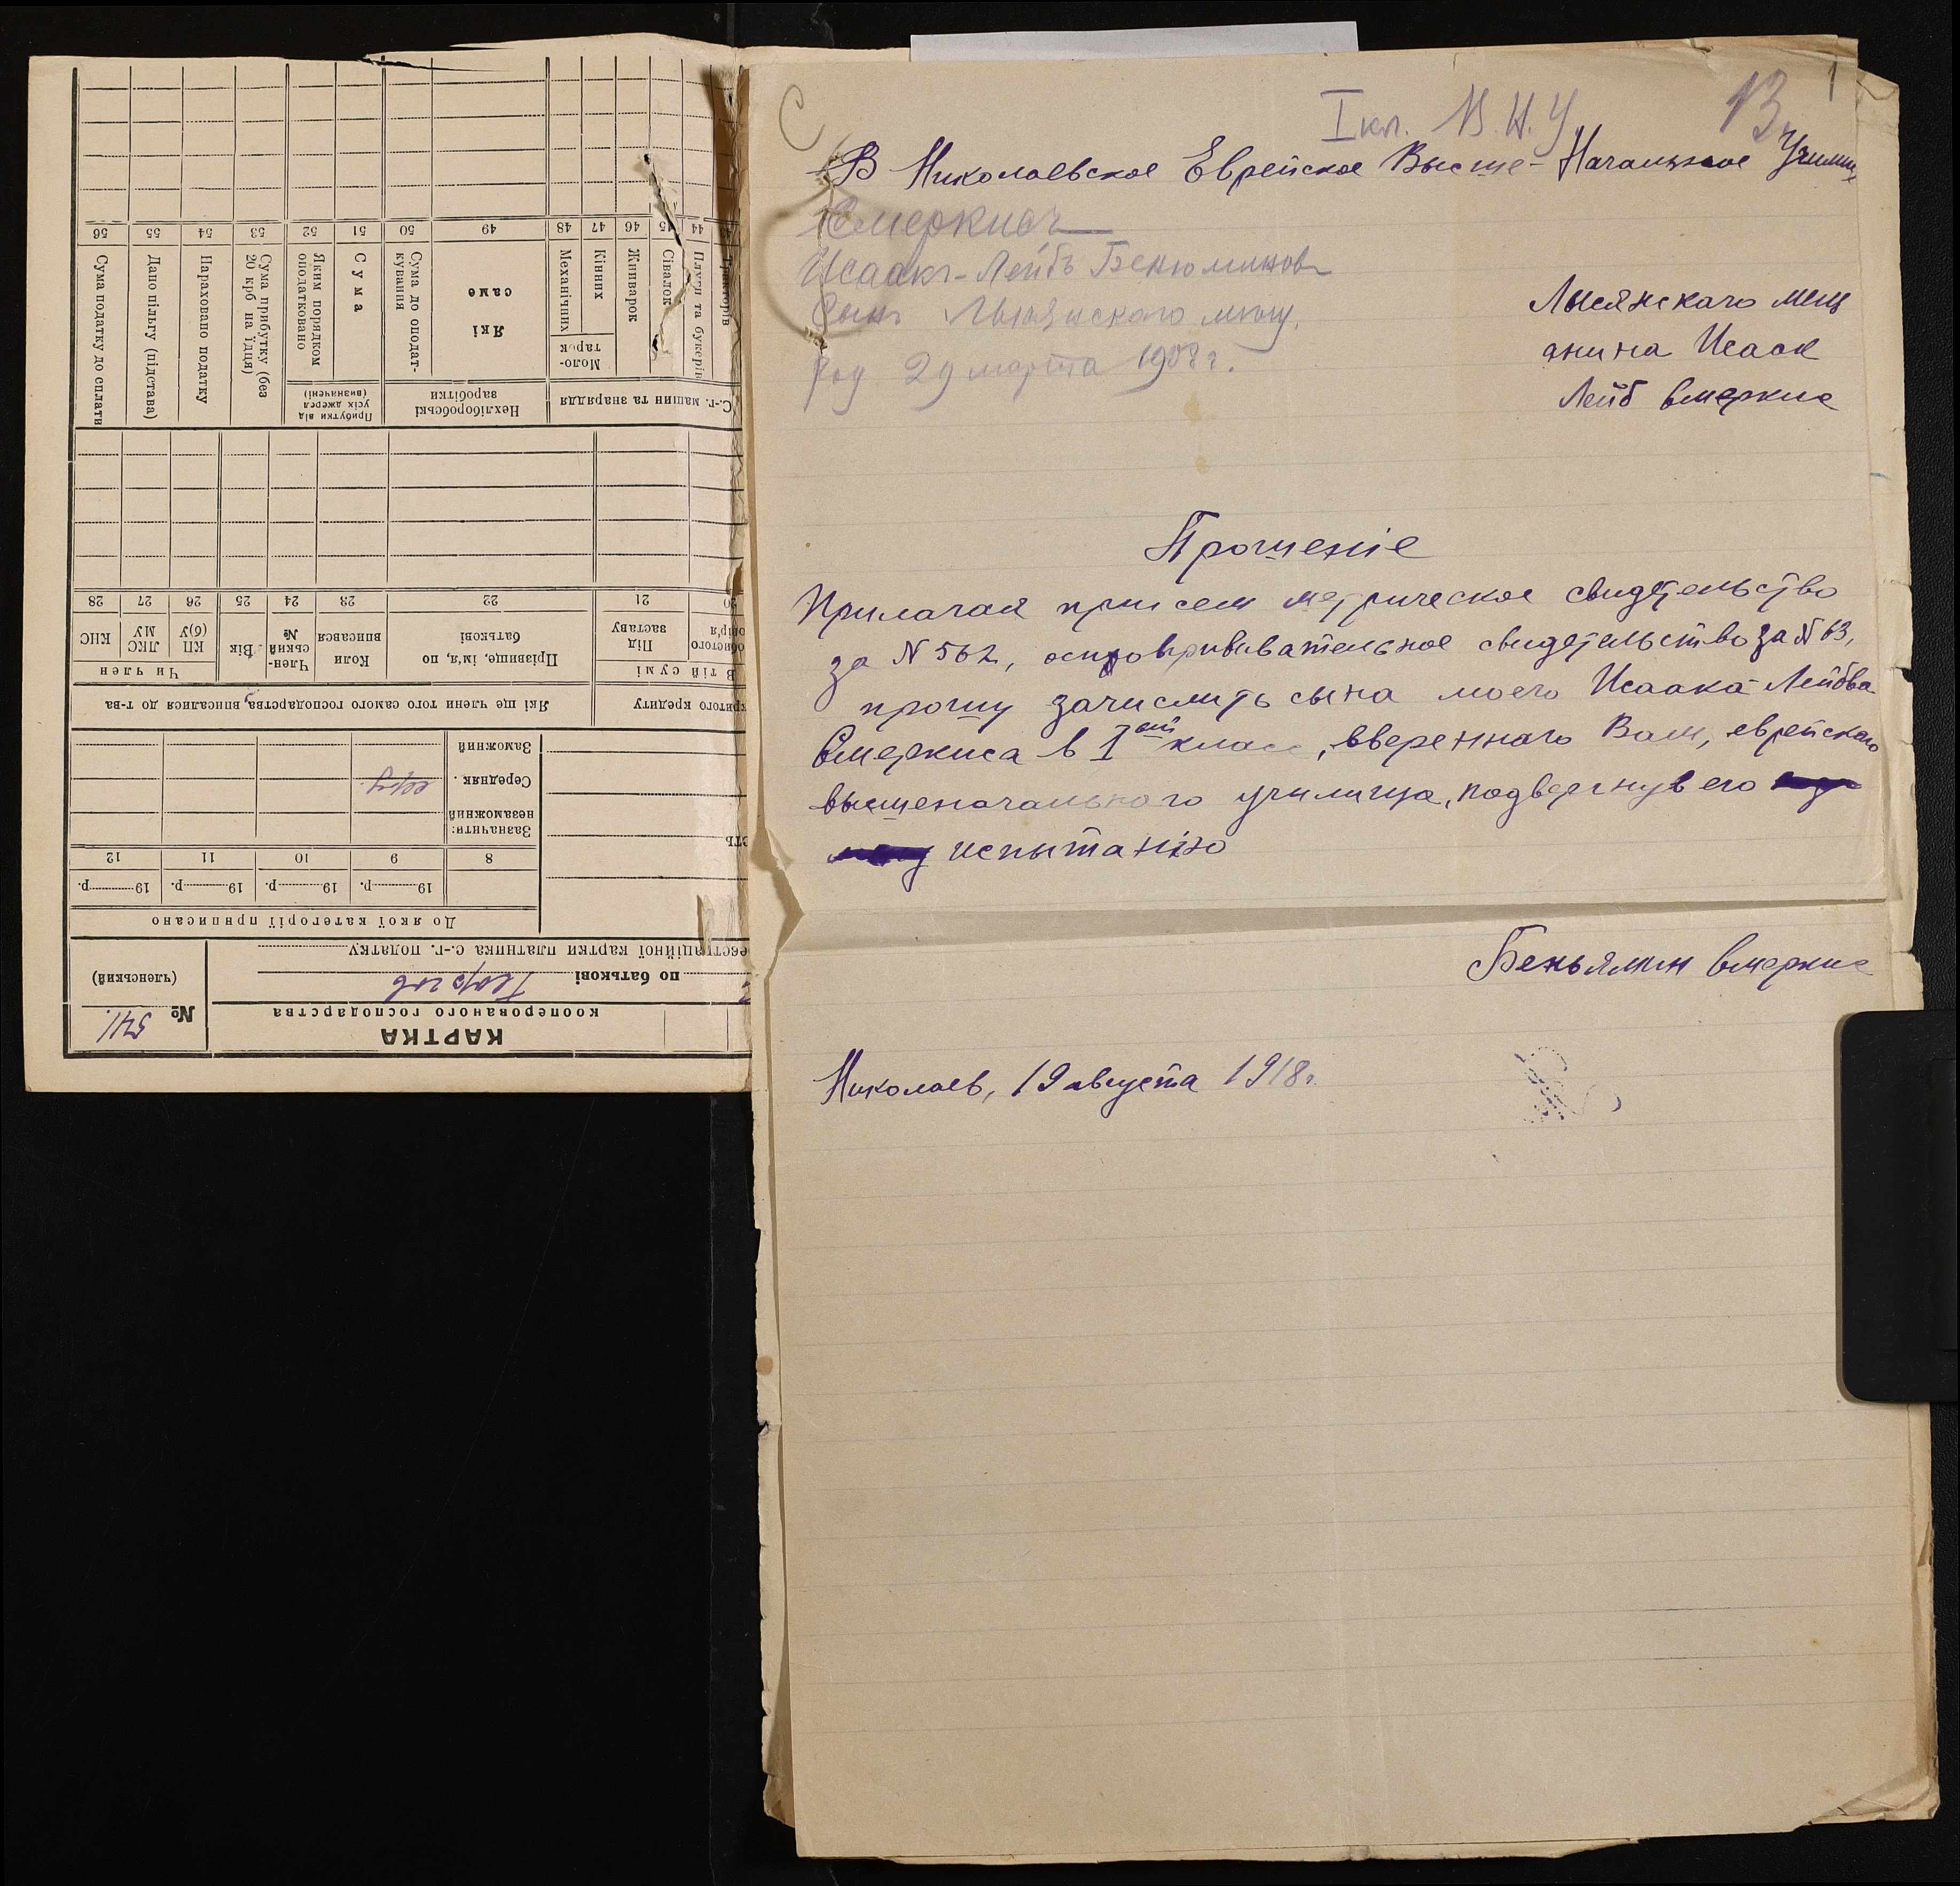 56 55 54 53 52 51 50 49 48 47 46 45 44
Сума податку до сплати
Дано пільгу (підстава)
Нараховано податку
Сума прибутку (без
20 крб на їдця)
Яким порядком
оподатковано
Сума
Сума до оподат-
кування
Які
саме
Механічних
Кінних
Моло-
тарок
Жниварок
Сівалок
Плуги та букерів
Прибутки від
усіх джерел
(визначені)
Нехліборобські
заробітки
С.-г. машин та знаряддя
28 27 26 25 24 23 22 21 20
КНС
ЛКС
МУ
КП
(б)У
Вік
Член-
ський
№
Коли
вписався
Прізвище, ім'я, по
батькові
Під
заставу
Чи член
В тій сумі
Які ще члени того самого господарства вписалися до т-ва
критого кредиту
Заможний
Середняк
серед.
незаможний
Зазначити:
12 11 10 9 8
19 р. 19 р. 19 р. 19 р.
До якої категорії приписано
еєстраційної картки платника с.-г. податку
по батькові
(членський)
№ 541.
кооперованого господарства
КАРТКА
1
13
I кл. В. Н. У.
В Николаевское Еврейское Высше-Начальное Училищ
Смеркисъ
Исаакъ-Лейбъ Бенюминовъ
Сынъ Лысянскаго мѣщ.
род 29 марта 1908 г.
Лысянскаго мещ
анина Исаак
Лейб Смеркис
Прошеніе
Прилагая при сем метрическое свидетельство
за N 562, оспопрививательное свидетельство за N 63,
прошу зачислить сына моего Исаака-Лейбва
Смеркиса в 1ый класс, вверенного Вам, еврейского
высшеначального училища, подвергнув его
испытанію
Беньямин Смеркис
Николаев, 19 августа 1918 г.